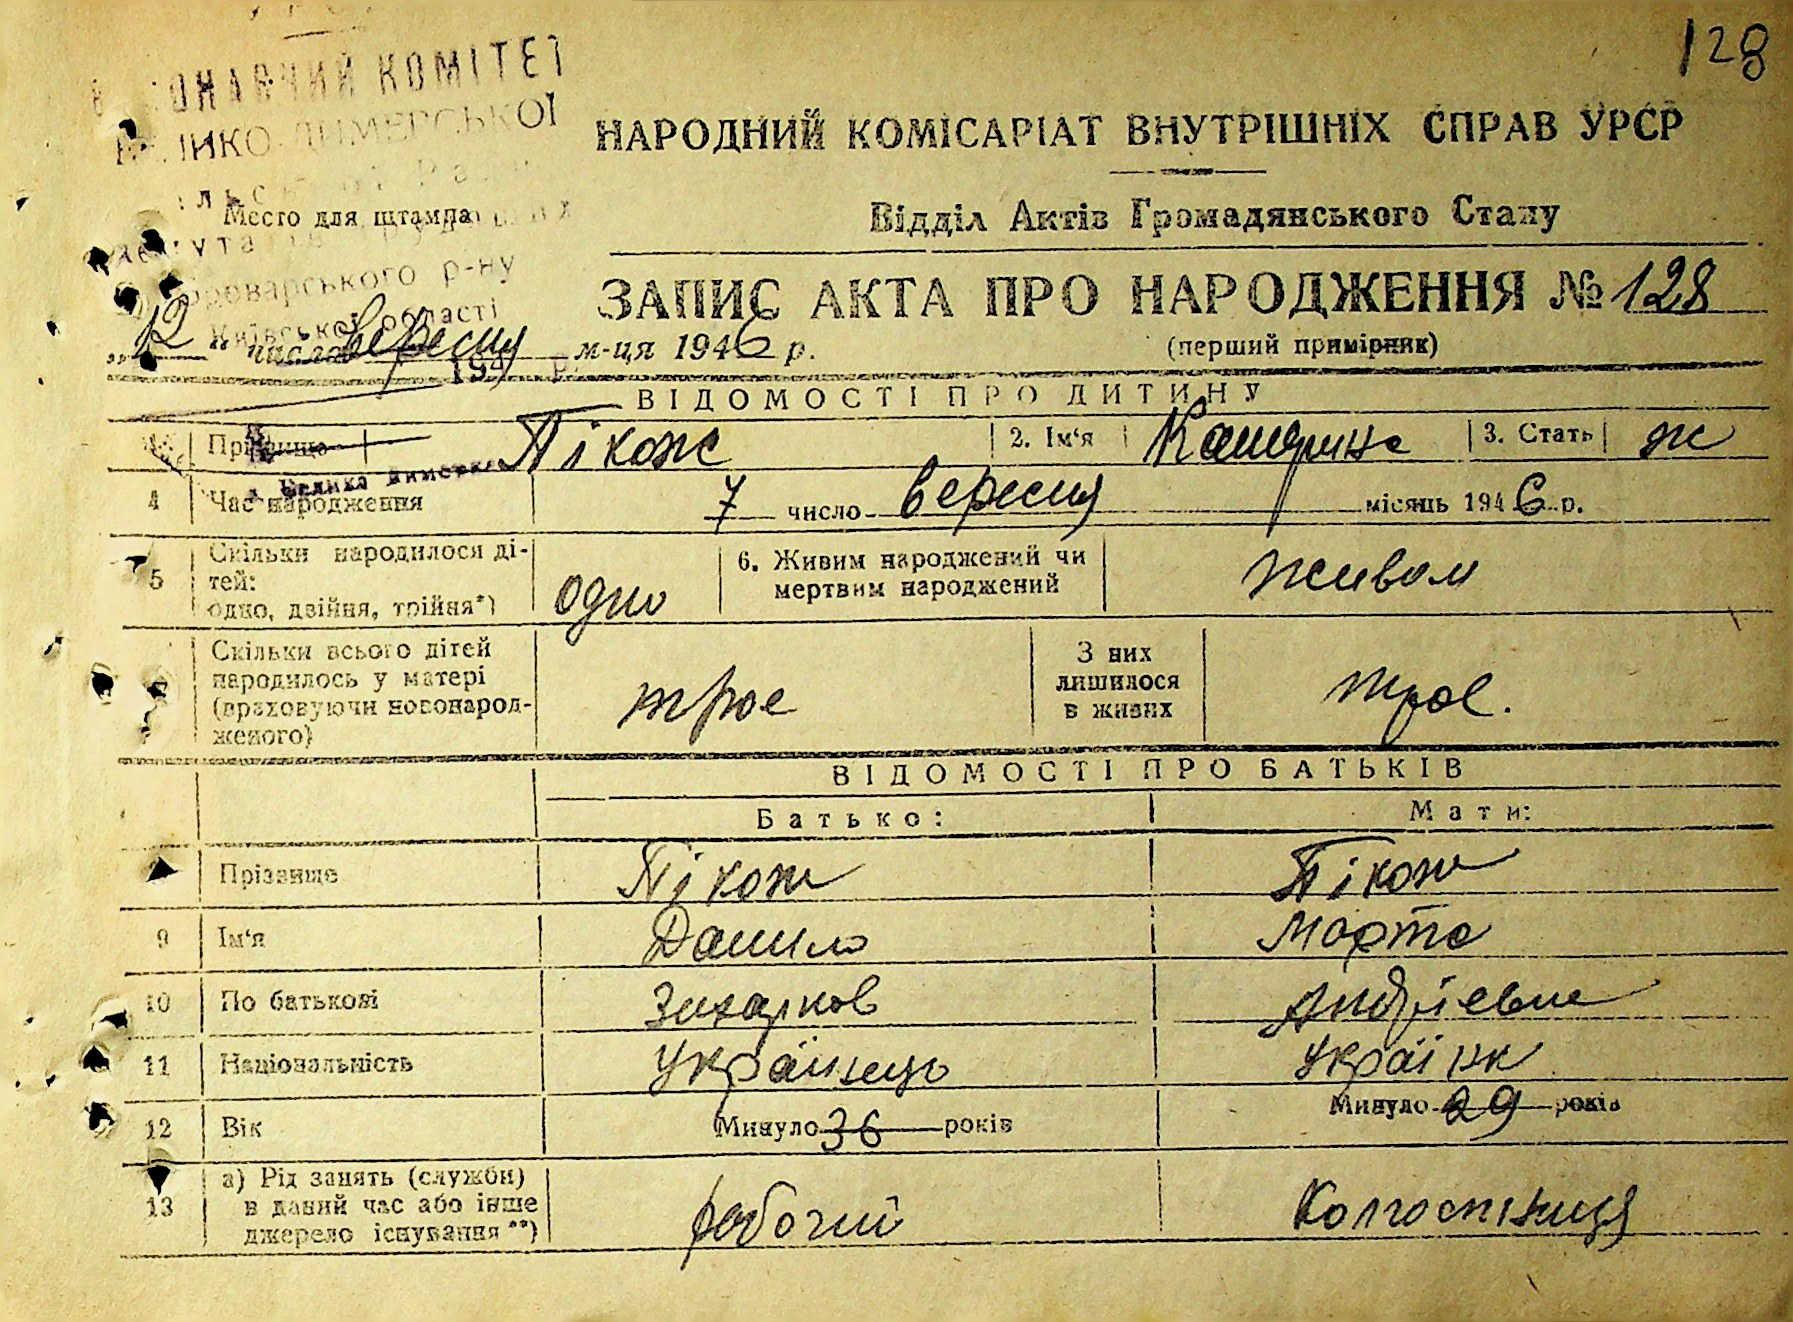 128
КОМІТЕТ
НАРОДНИЙ КОМІСАРІАТ ВНУТРІШНІХ СПРАВ УРСР
Место для штампа
Відділ Актів Громадянського Стану
р-ну
області
ЗАПИС АКТА ПРО НАРОДЖЕННЯ № 128
"12" числа вересня м-ця 1946 р.
(перший примірник)
194 р.
ВІДОМОСТІ ПРО ДИТИНУ
Прізвище Пікож 2. Ім'я Катерина 3. Стать ж
Велика Димерка
4 Час народження 7 число вересня місяць 1946 р.
5 Скільки народилося ді-
тей:
одно, двійня, трійня*) одно 6. Живим народжений чи
мертвим народжений живом
Скільки всього дітей
народилось у матері
(враховуючи новонарод-
женого) троє З них
лишилося
в живих троє.
ВІДОМОСТІ ПРО БАТЬКІВ
Батько: Мати:
Прізвище Пікож Пікож
9 Ім'я Данило Марта
10 По батькові Захарков Андріевна
11 Національність Українець Українк
12 Вік Минуло 36 років Минуло 29 років
13 а) Рід занять (служби)
в даний час або інше
джерело існування**) робочий Колгоспниця